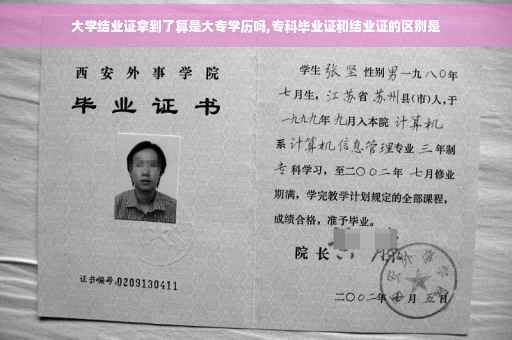 大学结业证拿到了算是大专学历吗,专科毕业证和结业证的区别是
西安外事学院
毕业证书
证书编号:0209130411
学生 张坚 性别 男 一九八〇年
七月生, 江苏省 苏州 县(市)人,于
一九九九年 九月入本院 计算机
系 计算机信息管理 专业 三 年制
专 科学习, 至二〇〇二年 七月修业
期满, 学完教学计划规定的全部课程,
成绩合格, 准予毕业。
院长
二〇〇二年 月 五日